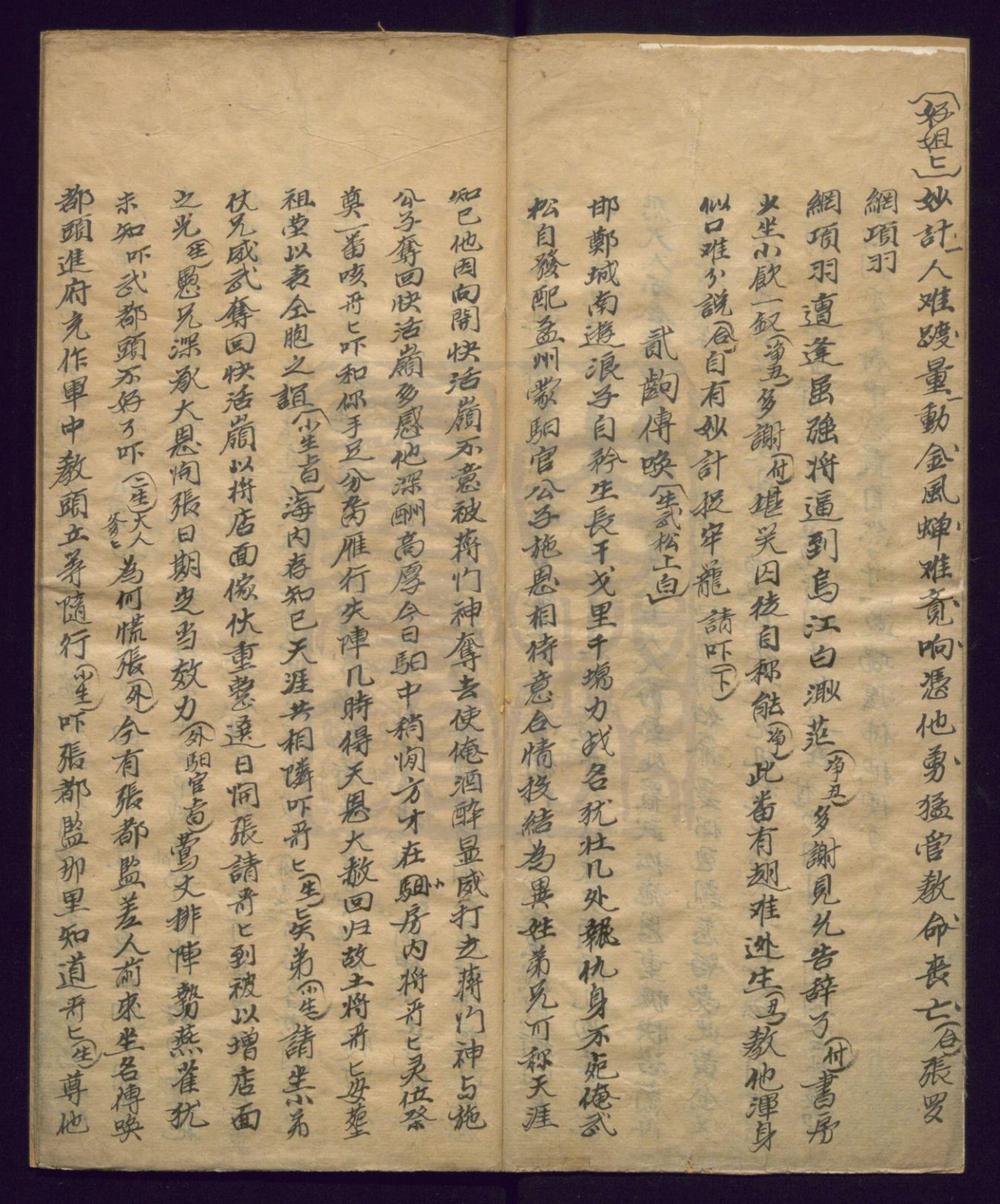 （好姐匕）妙計人难踱量動金風蟬难覔响憑他勇猛官教命丧亡（合）張罗
網項羽
網項羽遭逢虽强将逼到烏江白渺茫（净丑）多謝見允告辞了（付）書房
少坐小飲一叙（净丑）多謝（付）堪笑囚徒自称能（净）此畨有翅难迯生（丑）教他渾身
似口难分說（合）自有妙計捉牢籠請吓（下）
貳齣傳喚（生武松上白）
邯鄲城南遊浪子自矜生長干戈里千塲力战名犹壮几处報仇身不死俺武
松自發配孟州蒙馹官公子施恩相待意合情投結為異姓弟兄可称天涯
知已他因向開快活嶺不意被蒋门神奪去使俺酒醉显威打走蒋门神与施
公子奪回快活嶺多感他深酬高厚今日馹中稍閒方才在馹房内将哥匕灵位祭
奠一畨咳哥匕吓和你手足分离雁行失陣几時得天恩大赦回归故土将哥匕安塟
祖塋以表仝胞之誼（小生上白）海内存知已天涯共相隣吓哥匕（生）贤弟（小生）請坐小弟
仗兄威武奪回快活嶺以将店面傢伙重整選日開張請哥匕到彼以增店面
之光（生）愚兄深承大恩開張日期定当效力（外馹官白）鶯文排陣勢燕雀犹
未知吓武都頭不好了吓（二生）大人爹匕為何慌張（外）今有張都監差人前來坐名傳喚
都頭進府充作軍中教頭立等隨行（小生）吓張都監那里知道哥匕（生）尊他